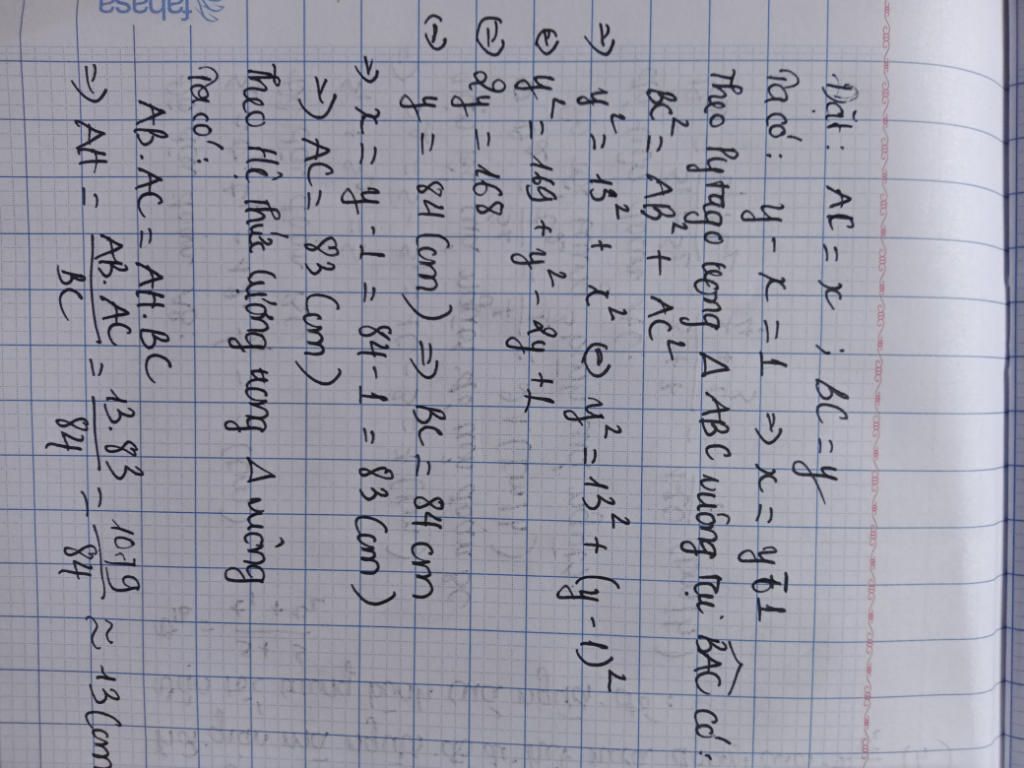 Đặt: AC = x ; BC = y
Ta có: y - x = 1 => x = y - 1
Theo Pytago trong Δ ABC vuông tại BAC có:
BC² = AB² + AC²
=> y² = 13² + x² <=> y² = 13² + (y - 1)²
<=> y² = 169 + y² - 2y + 1
<=> 2y = 168
<=> y = 84 (cm) => BC = 84 cm
=> x = y - 1 = 84 - 1 = 83 (cm)
=> AC = 83 (cm)
Theo Hệ thức lượng trong Δ vuông
Ta có:
AB. AC = AH. BC
=> AH = AB. AC / BC = 13. 83 / 84 = 1079 / 84 ≈ 13 (cm
fahasa